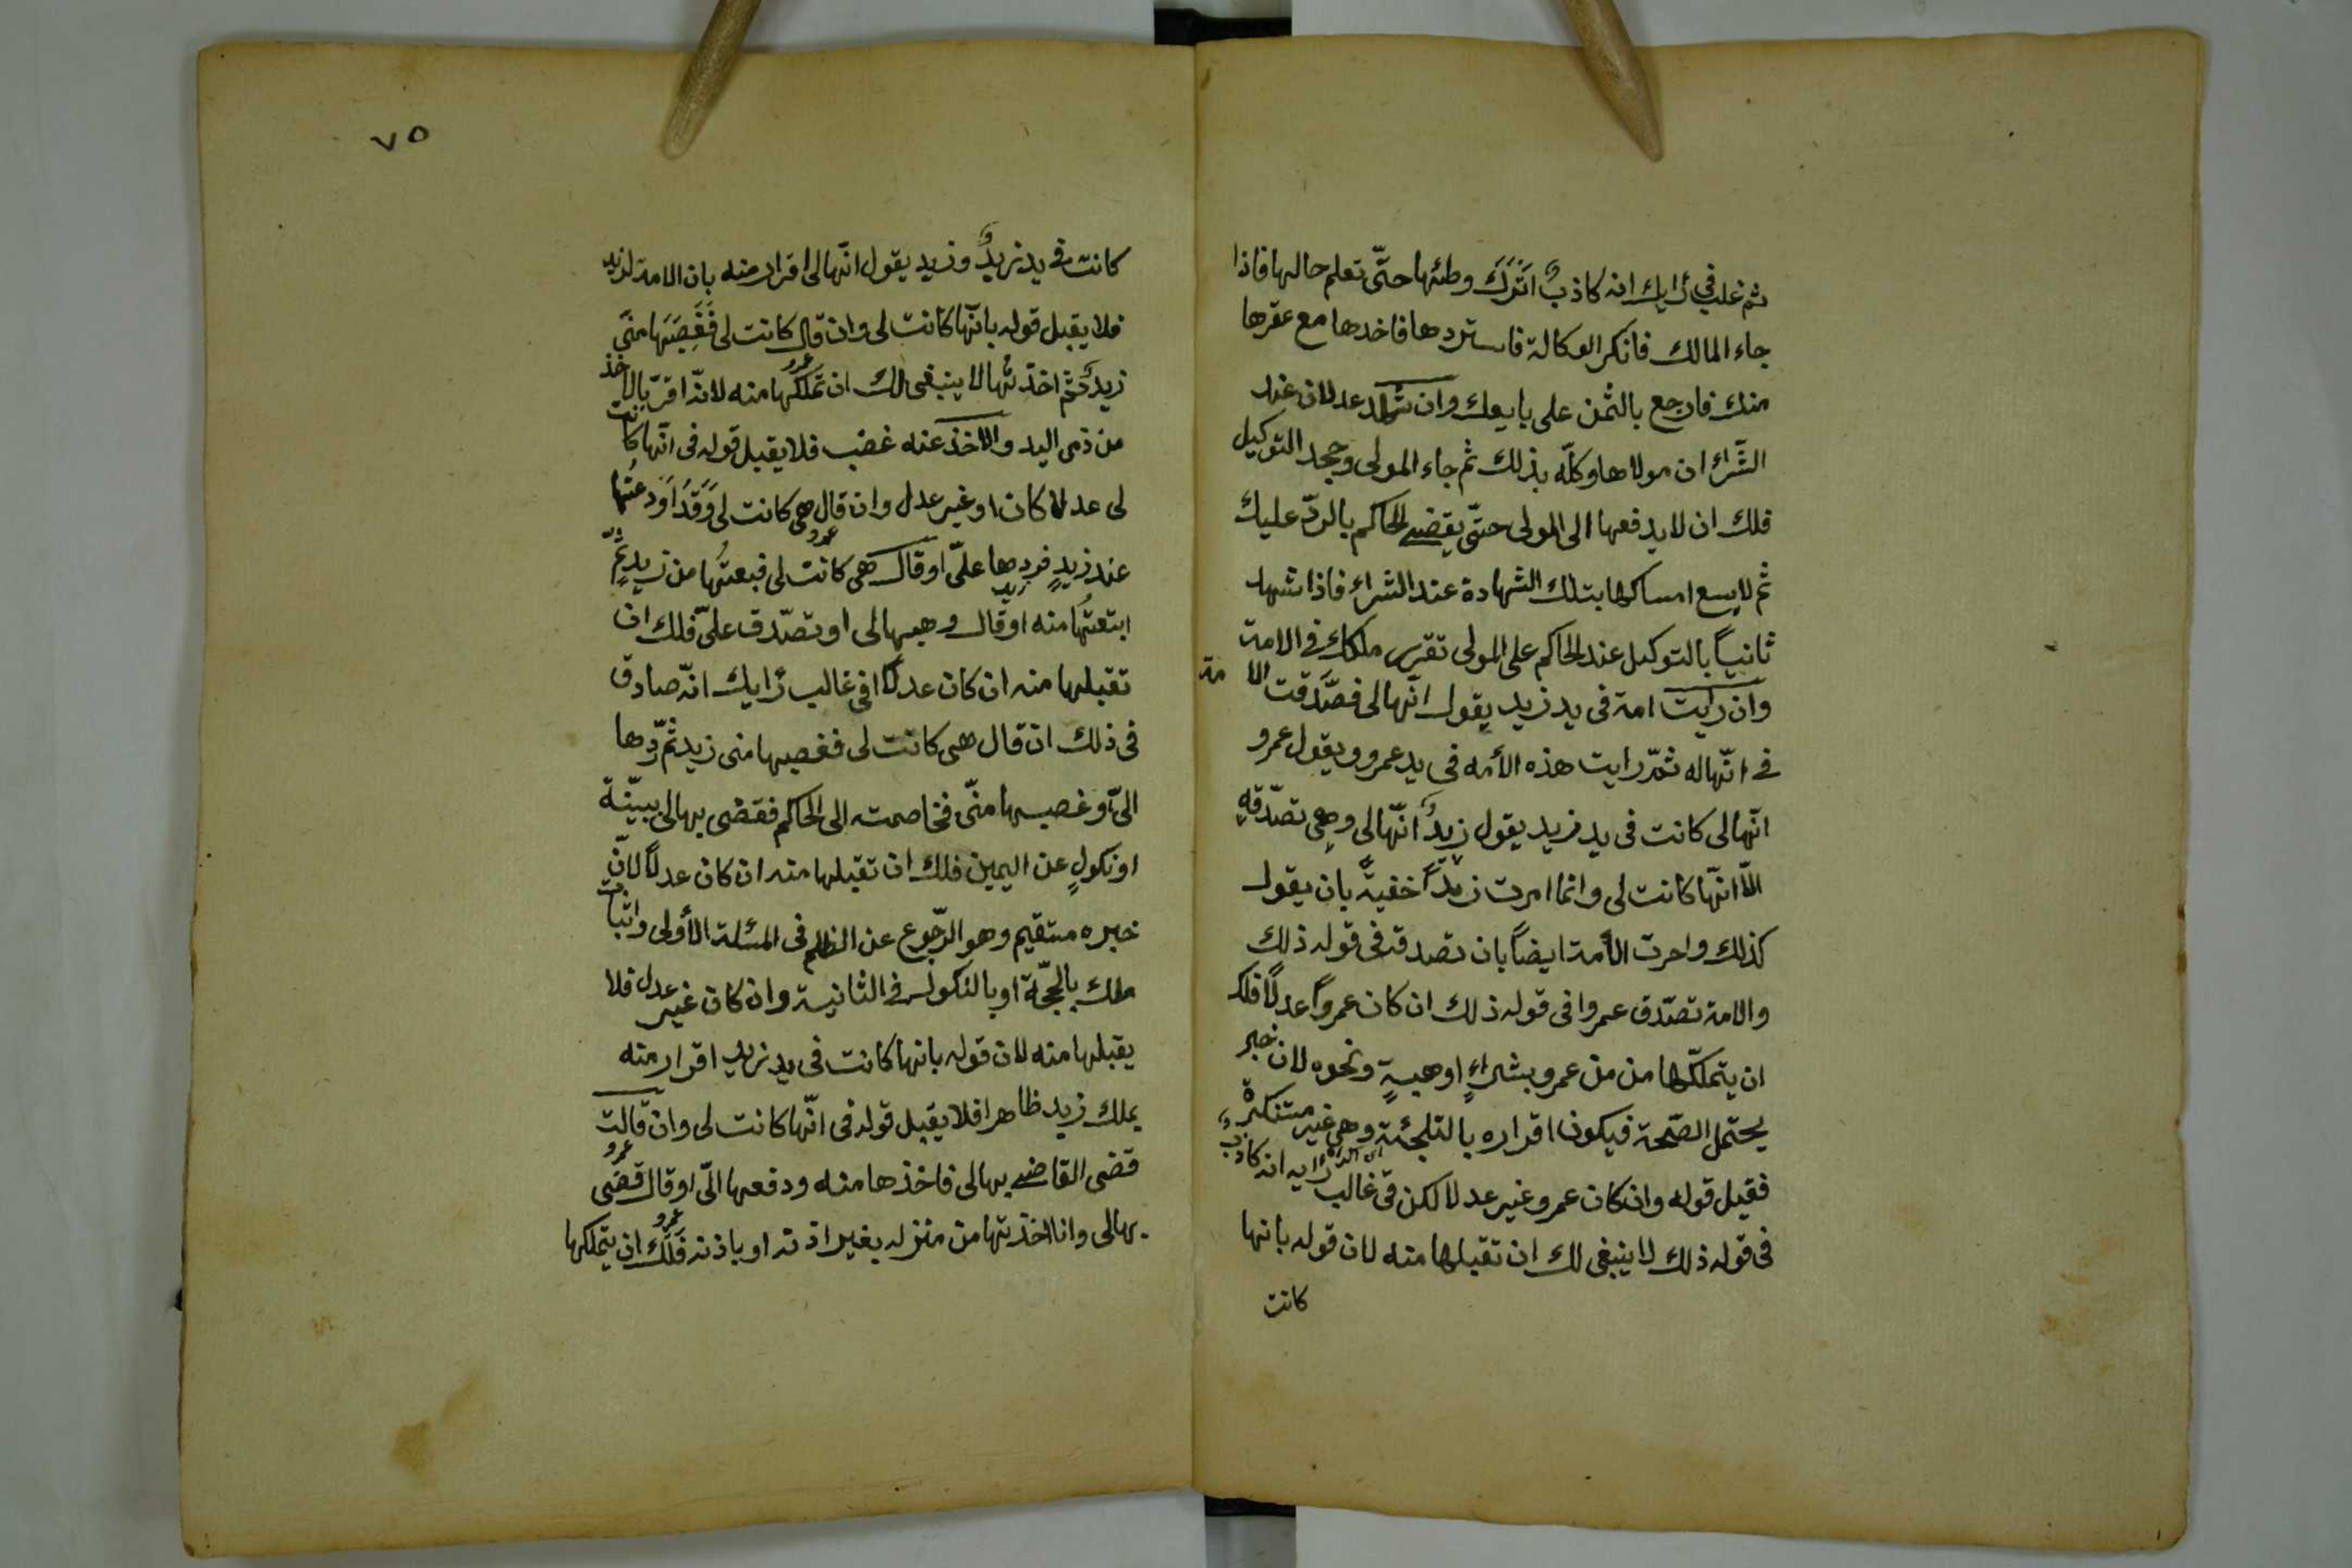 ثم غلب في رأيك انه كاذبٌ اترك وطئها حتّى تعلم حالها فاذا
جاء المالك فانكر الوكالة فاستردها فاخدها مع عقرها
منك فارجع بالثمن على بايعك وان شهد عدلان عند
الشراء ان مولاها وكلّه بذلك ثم جاء المولى وجحد التوكيل
فلك ان لا يدفعها الى المولى حتّى يقضے الحاكم بالردّ عليك
ثم لا يسع امساكها بتلك الشهادة عند الشراء فاذا شهد
ثانياً بالتوكيل عند الحاكم على المولى تقرر ملكك فے الامة
وان رايت امة فى يد زيد يقول انّها لى فصّدقت الامة
فے انّها له ثمّ رايت هذه الأمه فى يد عمرو ويقول عمرو
انّها لى كانت فى يد زيد يقول زيدٌ انّها لى وهى تصّدقه
الّا انّها كانت لى وانما امرت زيداً خفيةً بان يقول
كذلك وامرت الأمة ايضاً بان تصدقه فى قوله ذلك
والامة تصّدق عمروا فى قوله ذلك ان كان عمرواً عدلاً فلك
ان يتملكّها من من عمرو بشراءٍ او هبةٍ ونحوه لان خبر
يحتمل الصّحة فيكون اقراره بالتلجئة وهى غير مستنكرة
فقيل قوله وان كان عمرو غير عدلا لكن فى غالب رأيه انه كاذبٌ
فى قوله ذلك لا ينبغى لك ان تقبلها منه لان قوله بانها
كانت
٧٥
كانت فے يد زيدٌ وزيد يقول انّها لى اقرار منه بان الامة لزيد
فلا يقبل قوله بانّها كانت لى وان قال كانت لى فَغَصِبَها منّى
زيدٌ ثم اخذتُها لا ينبغى لك ان تملكها منه لانّه اقرّ بالاخذ
من ذى اليد والاخذ عنه غضب فلا يقبل قوله فى انّها كانت
لى عدلا كان او غير عدل وان قال هى كانت لى وَقَدَ اَودعتُها
عند زيدٍ فردها علىّ او قال عمرو هى كانت لى فبعتُها من زيدٍ ثمّ
ابتعتُها منه او قال وهبها لى او تصّدق علىّ فلك ان
تقبلها منه ان كان عدلاً فى غالب رأيك انّه صادق
فى ذلك ان قال هى كانت لى فغصبها منى زيد ثمّ ردّها
الىّ او غصبها منّى فخاصمته الى الحاكم فقضى بها لى ببيّنة
او نكولٍ عن اليمين فلك ان تقبلها منه ان كان عدلاً لانّ
خبره مستقيم وهو الرّجوع عن الظلم فى المسئلة الأولى واثبات
ملك بالحجّة او بالنكول فے الثانية وان كان غير عدل فلا
يقبلها منه لان قوله بانها كانت فى يد زيد اقرار منه
يملك زيد ظاهرا فلا يقبل قوله فى انّها كانت لى وان قالت
قضى القاضے بها لى فاخذها منه ودفعها الىّ او قال عمرو قضى
بها لى وانا اخذتها من منزله بغير اذنه او باذنه فلك ان يتملكها